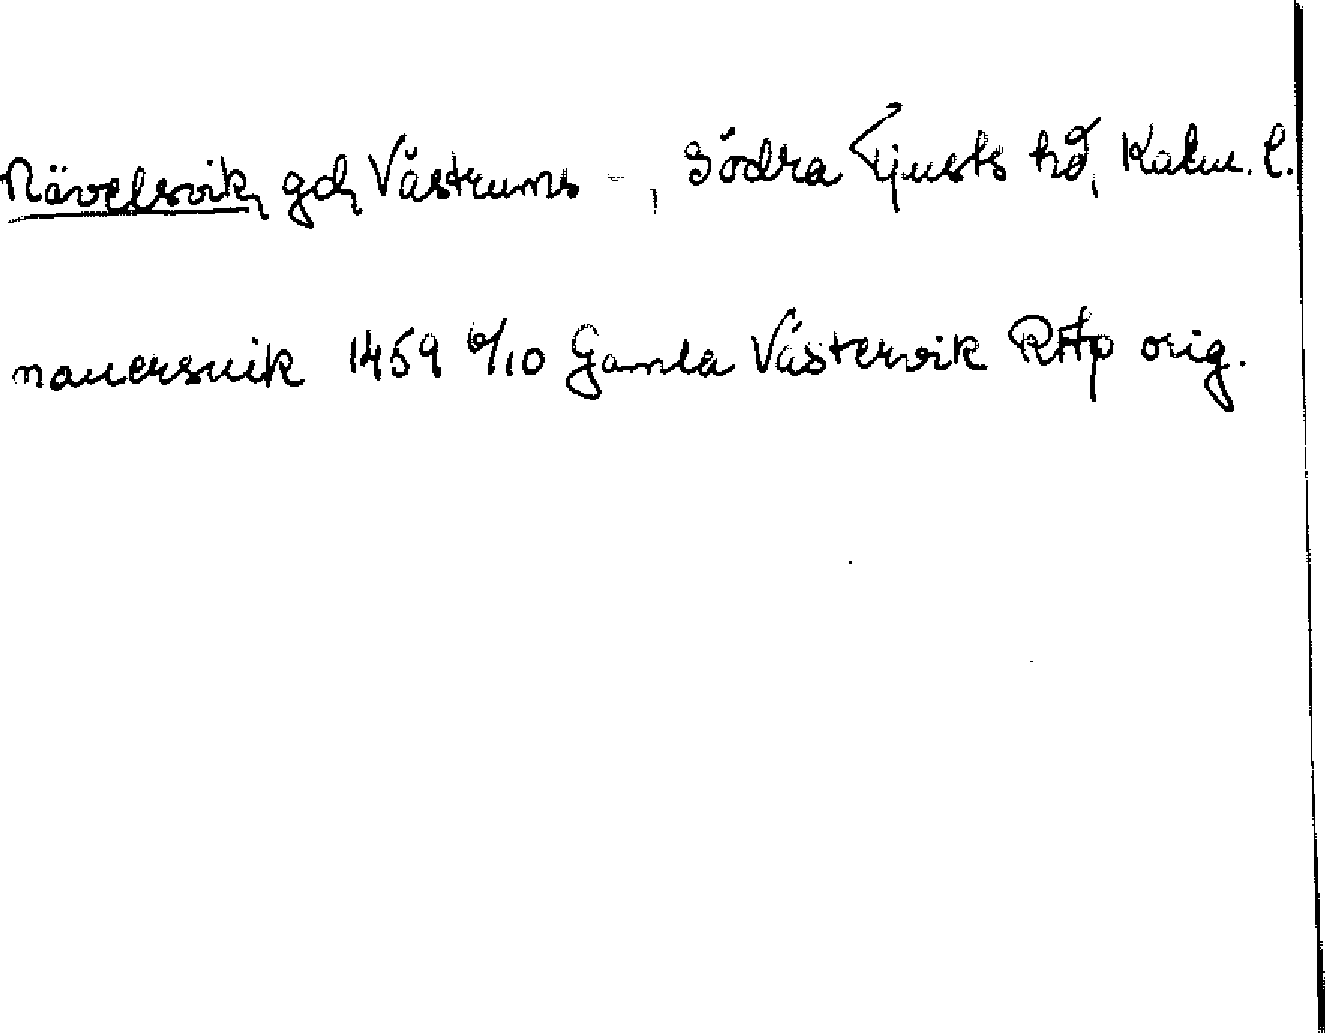 Nävelsvik, gd, Västrums -, Södra Tjusts hd, Kalm. l.
nauersuik 1459 6/10 Gamla Västervik RAp orig.